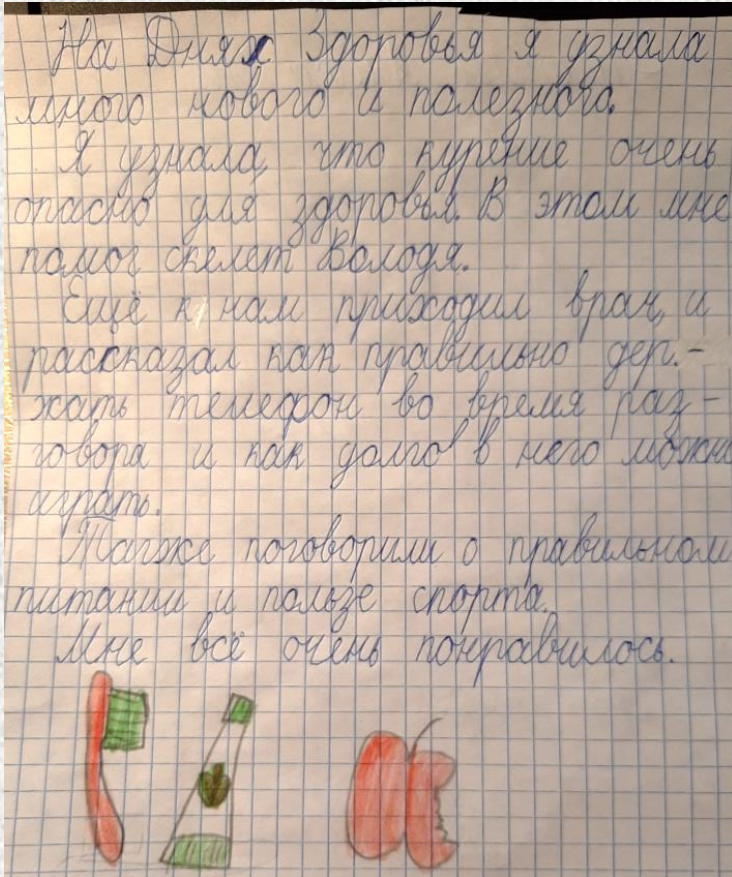 На Днях Здоровья я узнала
много нового и полезного.
Я узнала, что курение очень
опасно для здоровья. В этом мне
помог скелет Володя.
Ещё к нам приходил врач, и
рассказал как правильно дер-
жать телефон во время раз-
говора и как долго в него можно
играть.
Также поговорили о правильном
питании и пользе спорта.
Мне всё очень понравилось.